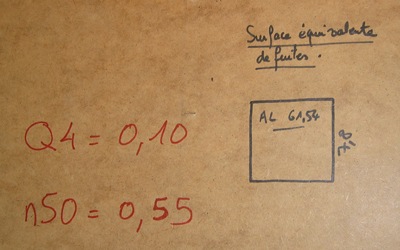 Surface équivalente
de fuites.
AL 61,54
7,8
Q4 = 0,10
n50 = 0,55